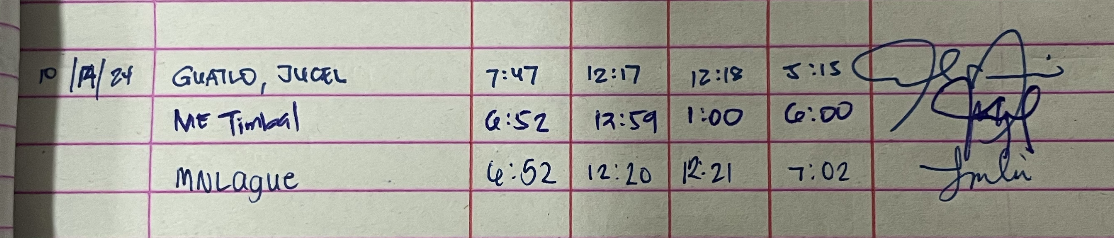 10/14/24 GUATLO, JUCEL 7:47 12:17 12:18 5:15
ME Timbal 6:52 12:59 1:00 6:00
MNLague 6:52 12:20 12:21 7:02